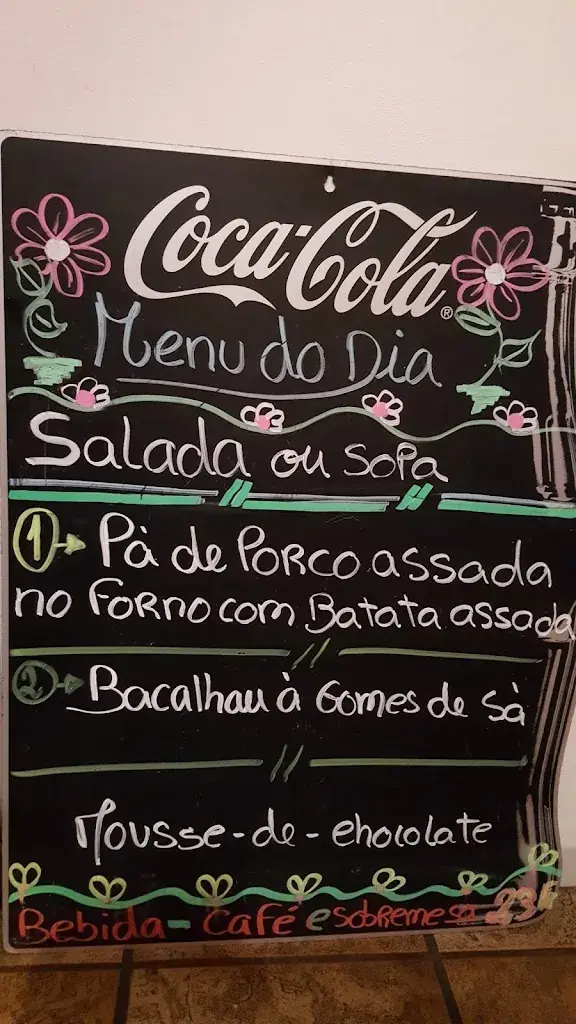 Coca-Cola®
Menu do Dia
Salada ou Sopa
1 Pà de Porco assada
no Forno com Batata assada
2 Bacalhau à Gomes de Sà
Mousse-de-chocolate
Bebida - Café e sobremesa 23